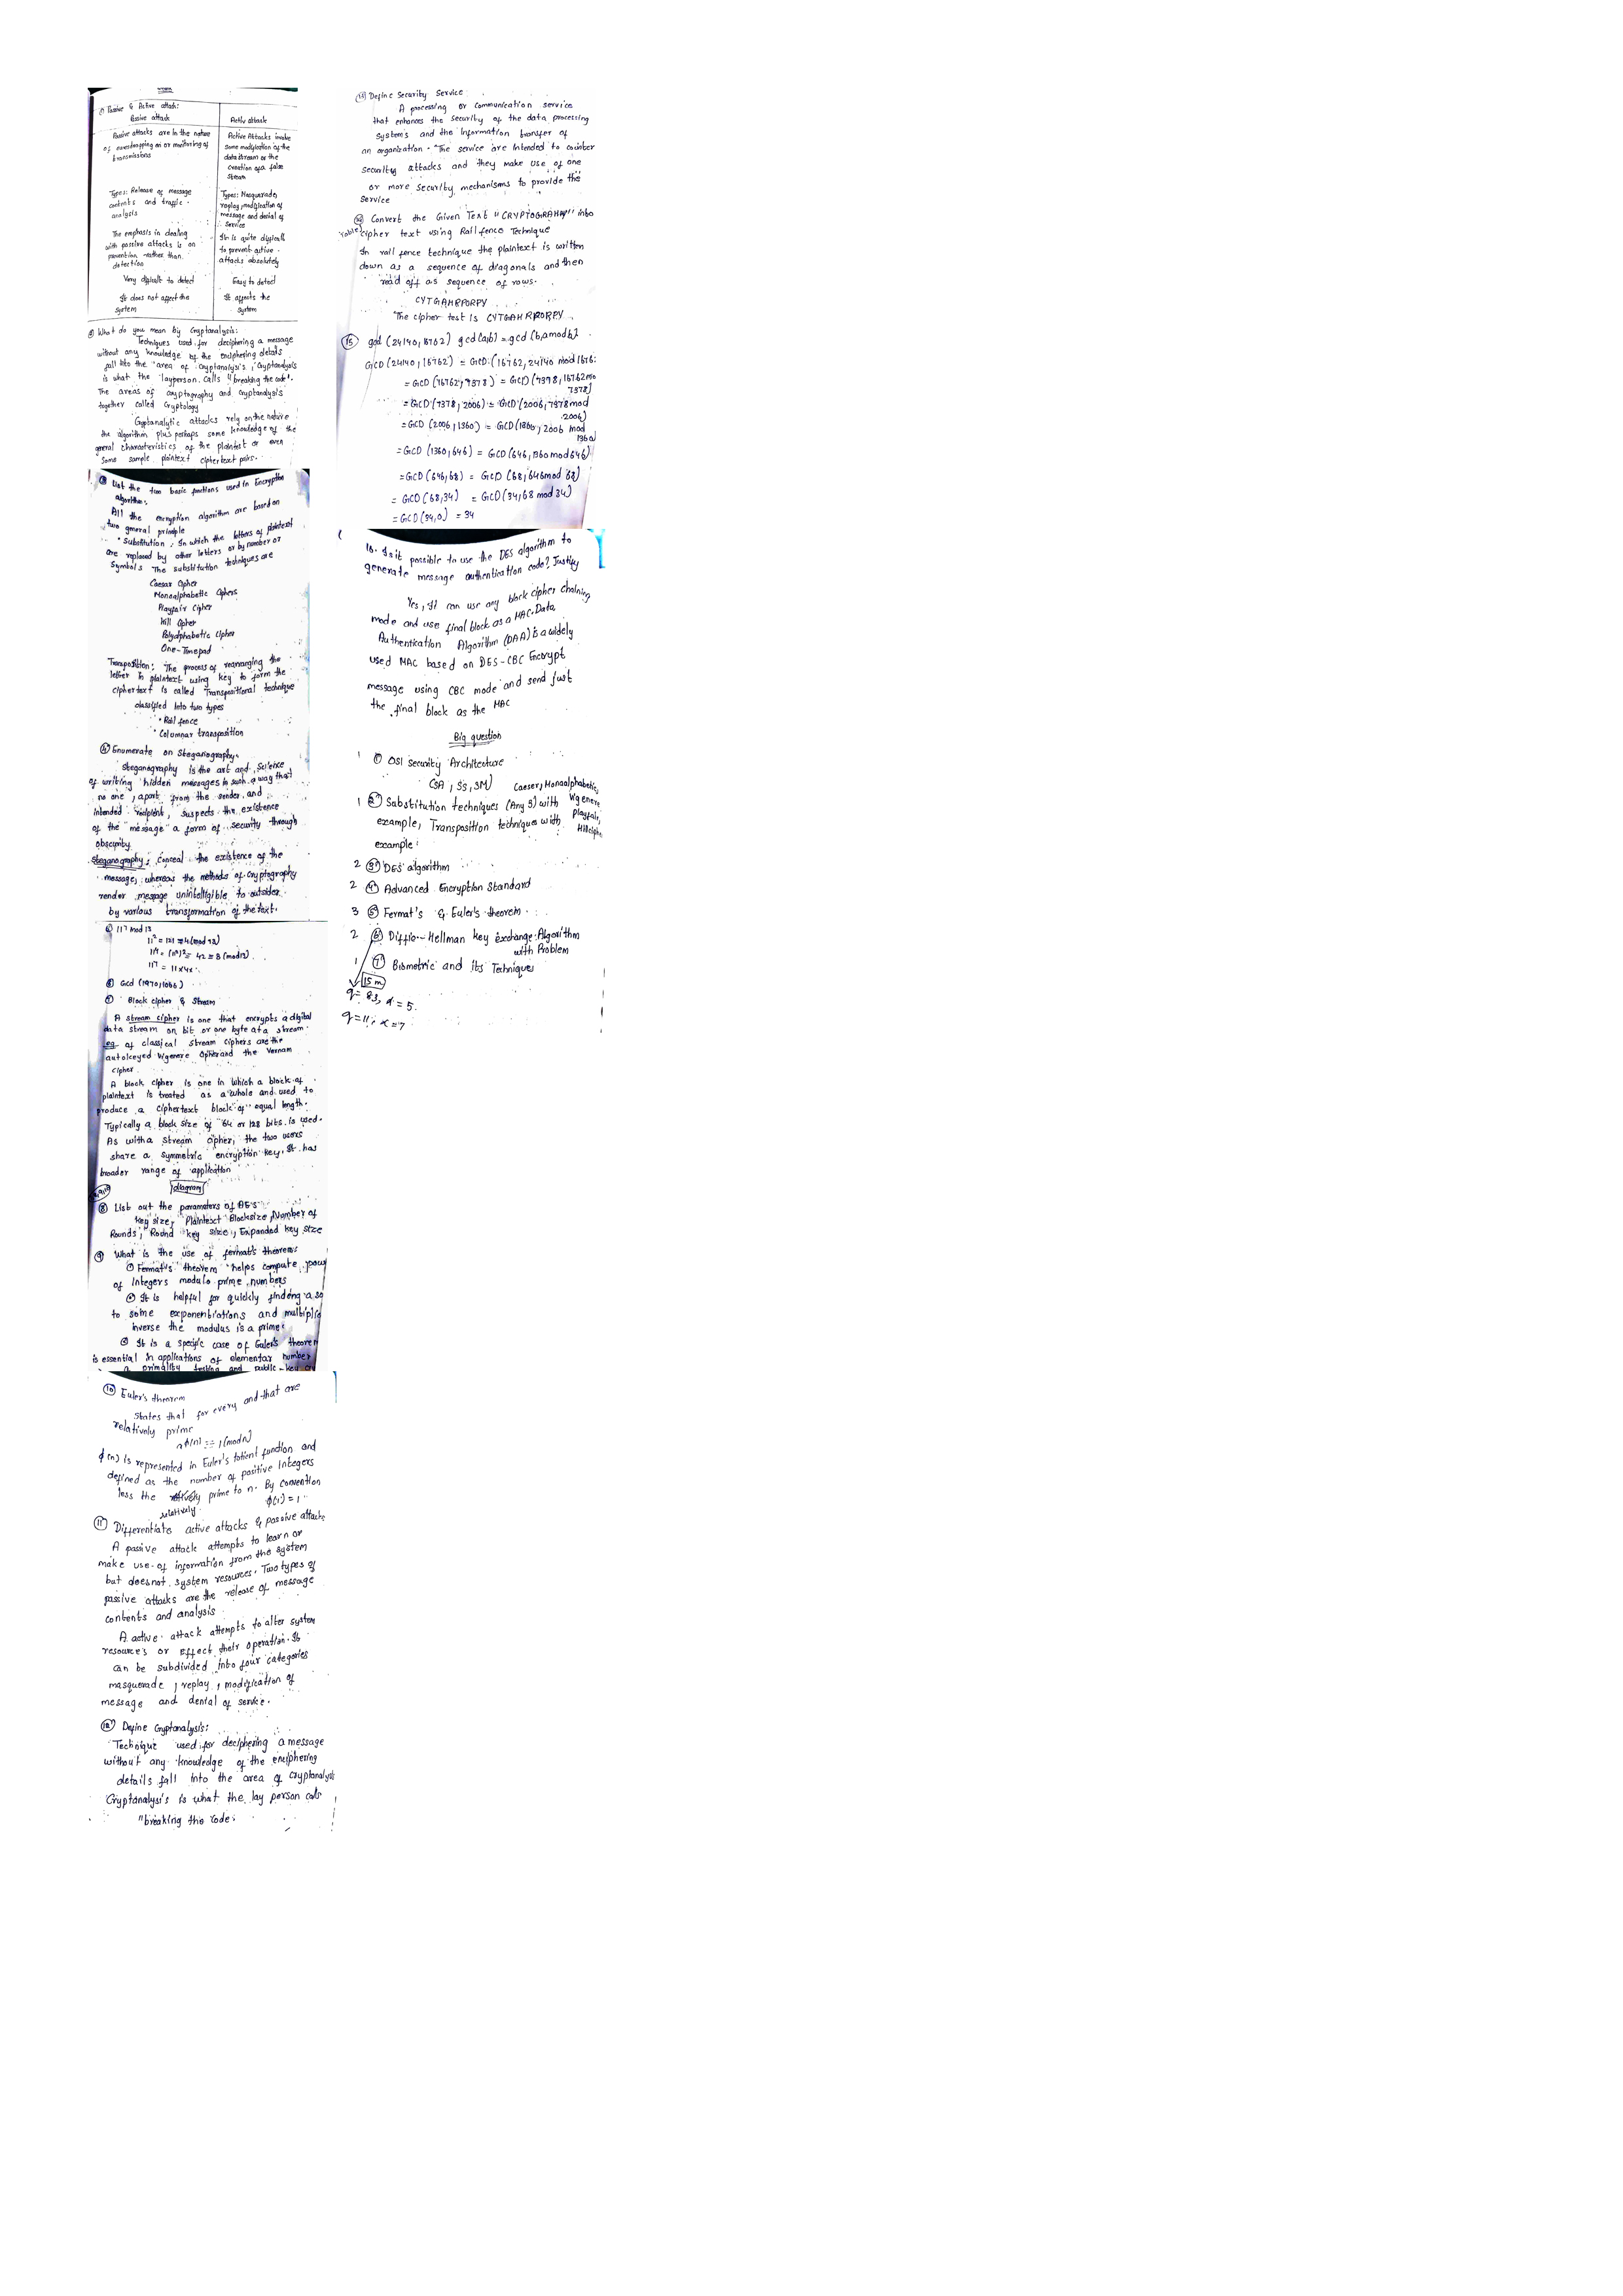 ① Passive & Active attack:
Passive attack
Activ attack
Passive attacks are in the nature
of eavesdropping on or monitoring of
transmissions
Active Attacks involve
some modification of the
data stream or the
creation of a false
stream
Types: Release of message
contents and traffic
analysis
Types: Masquerade,
replay, modification of
message and denial of
service
The emphasis in dealing
with passive attacks is on
prevention rather than
detection
It is quite difficult
to prevent active
attacks absolutely
Very difficult to detect
Easy to detect
It does not affect the
system
It affects the
system
② What do you mean by Cryptanalysis:
Techniques used for deciphering a message
without any knowledge of the enciphering details
fall into the area of Cryptanalysis, Cryptanalysis
is what the layperson calls "breaking the code".
The areas of cryptography and Cryptanalysis
together called Cryptology
Cryptanalytic attacks rely on the nature
the algorithm plus perhaps some knowledge of the
general characteristics of the plaintext or even
Some sample plaintext ciphertext pairs.
③ List the two basic functions used in Encryption
algorithms.
All the encryption algorithm are based on
two general principle
• Substitution: In which the letters of plaintext
are replaced by other letters or by number or
Symbols The substitution techniques are
Caesar Cipher
Monoalphabetic Ciphers
Playfair Cipher
Hill Cipher
Polyalphabetic Cipher
One-Timepad
Transposition: The process of rearranging the
letter in plaintext using key to form the
ciphertext is called Transpositional technique
classified into two types
• Rail fence
• Columnar transposition
④ Enumerate on Steganography.
Steganography is the art and Science
of writing hidden messages in such a way that
no one, apart from the sender, and
intended recipient, suspects the existence
of the "message" a form of security through
obscurity.
Steganography: Conceal the existence of the
message, whereas the methods of Cryptography
render message unintelligible to outsider
by various transformation of the text.
117 mod 13
11² = 121 ≡ 4 (mod 13)
11⁴ = (11²)² ≡ 42 ≡ 3 (mod 13)
11⁷ = 11x4x
⑥ Gcd (1970,1066)
⑦ Block cipher & Stream
A stream cipher is one that encrypts a digital
data stream on bit or one byte at a stream.
eg of classical stream ciphers are the
autokeyed Vigenere Cipher and the Vernam
cipher
A block cipher is one in which a block of
plaintext is treated as a whole and used to
produce a ciphertext block of equal length.
Typically a block size of 64 or 128 bits is used.
As with a stream cipher, the two users
share a symmetric encryption key. It has
broader range of application
diagram
⑧ List out the parameters of AES
key size, Plaintext Blocksize, Number of
Rounds, Round key size, Expanded key size
⑨ What is the use of fermat's theorem:
① Fermat's theorem helps compute pow
of Integers modulo prime numbers
② It is helpful for quickly finding a so
to some exponentiations and multiplic
inverse the modulus is a prime
③ It is a specific case of Euler's theorem
is essential in applications of elementar number
primality testing and public-key
⑩ Euler's theorem
States that for every and that are
relatively prime
a ϕ(n) ≡ 1 (mod n)
ϕ(n) is represented in Euler's totient function and
defined as the number of positive Integers
less the relatively prime to n. By convention
ϕ(1) = 1
⑪ Differentiate active attacks & passive attacks
A passive attack attempts to learn or
make use of information from the system
but doesnot system resources. Two types of
passive attacks are the release of message
contents and analysis.
A active attack attempts to alter system
resources or Effect their operation. It
can be subdivided into four categories
masquerade, replay, modification of
message and denial of service.
⑫ Define Cryptanalysis:
Technique used for deciphering a message
without any knowledge of the enciphering
details fall into the area of Cryptanalysis
Cryptanalysis is what the lay person calls
"breaking the code.
⑬ Define Security Service
A processing or communication service
that enhances the security of the data processing
Systems and the Information transfer of
an organization. The service are Intended to counter
security attacks and they make use of one
or more security mechanisms to provide the
Service
⑭ Convert the Given Text "CRYPTOGRAHPY" into
cipher text using Rail fence Technique
In rail fence technique the plaintext is written
down as a sequence of diagonals and then
read off as sequence of rows.
CYTGAHRPORPY
The cipher text is CYTGAHRPORPY
⑮ gcd (24140, 16762) gcd (a,b) = gcd (b, a mod b)
GCD (24140, 16762) = GCD (16762, 24140 mod 1676
= GCD (16762, 7378) = GCD (7378, 16762 mo
7378)
= GCD (7378, 2006) = GCD (2006, 7378 mod
2006)
= GCD (2006, 1360) = GCD (1360, 2006 mod
1360)
= GCD (1360, 646) = GCD (646, 1360 mod 646)
= GCD (646, 68) = GCD (68, 646 mod 68)
= GCD (68, 34) = GCD (34, 68 mod 34)
= GCD (34, 0) = 34
16. Is it possible to use the DES algorithm to
generate message authentication code? Justify
Yes, It can use any block cipher chaining
mode and use final block as a MAC. Data
Authentication Algorithm (DAA) is a widely
used MAC based on DES-CBC Encrypt
message using CBC mode and send just
the final block as the MAC
Big question
1 ① OSI security Architecture
(SA, SS, SM)
1 ② Substitution techniques (Any 3) with
example, Transposition techniques with
example
Caeser, Monoalphabetic,
Vigenere
Playfair,
Hillciph
2 ③ DES algorithm
2 ④ Advanced Encryption Standard
3 ⑤ Fermat's & Euler's theorem.
2 ⑥ Diffie-Hellman key exchange Algorithm
with Problem
1 ⑦ Biometric and its Techniques
15m
q = 83, α = 5.
q = 11, α = 7